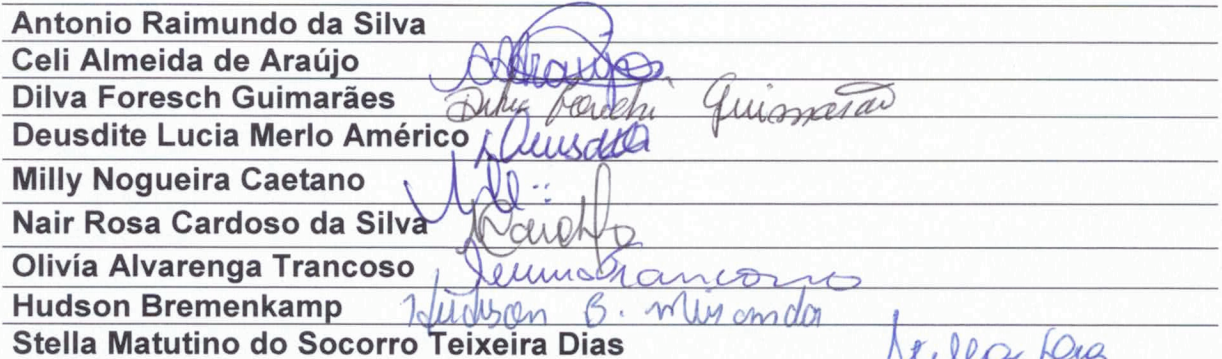 Antonio Raimundo da Silva
Celi Almeida de Araújo
Dilva Foresch Guimarães Guimarães
Deusdite Lucia Merlo Américo Deusdite
Milly Nogueira Caetano
Nair Rosa Cardoso da Silva
Olivía Alvarenga Trancoso Trancoso
Hudson Bremenkamp Hudson B. Miranda
Stella Matutino do Socorro Teixeira Dias